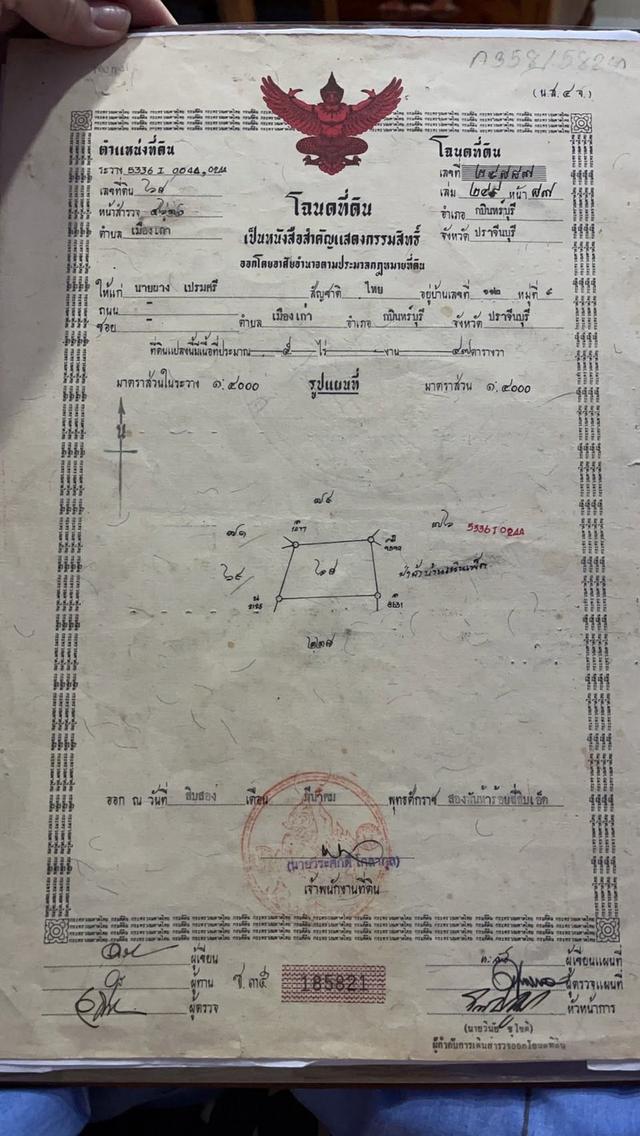 (น.ส.๔ จ.)
ตำแหน่งที่ดิน
ระวาง 5336 I
เลขที่ดิน ๖๘
หน้าสำรวจ
ตำบล เมืองเก่า
โฉนดที่ดิน
เลขที่
เล่ม หน้า ๘๗
อำเภอ กบินทร์บุรี
จังหวัด ปราจีนบุรี
โฉนดที่ดิน
เป็นหนังสือสำคัญแสดงกรรมสิทธิ์
ออกโดยอาศัยอำนาจตามประมวลกฎหมายที่ดิน
ให้แก่ นายยาง เปรมศรี สัญชาติ ไทย อยู่บ้านเลขที่ ๑๓๒ หมู่ที่
ถนน -
ซอย - ตำบล เมืองเก่า อำเภอ กบินทร์บุรี จังหวัด ปราจีนบุรี
ที่ดินแปลงนี้มีเนื้อที่ประมาณ ๕ ไร่ - งาน ๔๗ ตารางวา
มาตราส่วนในระวาง ๑:๔๐๐๐ รูปแผนที่ มาตราส่วน ๑:๔๐๐๐
น
๗๙
๗๑
5336 I
๖๙
๖๘
๒๒๓๗
ออก ณ วันที่ สิบสอง เดือน มีนาคม พุทธศักราช สองพันห้าร้อยสี่สิบเอ็ด
เจ้าพนักงานที่ดิน
ผู้เขียน
ผู้ทาน
ผู้ตรวจ
ช.๓๕
185821
ผู้เขียนแผนที่
ผู้ตรวจแผนที่
หัวหน้าการ
(นายวินัย ชูโชติ)
ผู้กำกับการเดินสำรวจออกโฉนดที่ดิน